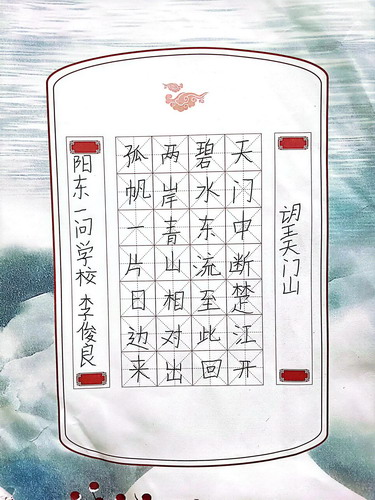 望天门山
天门中断楚江开
碧水东流至此回
两岸青山相对出
孤帆一片日边来
阳东一问学校 李俊良